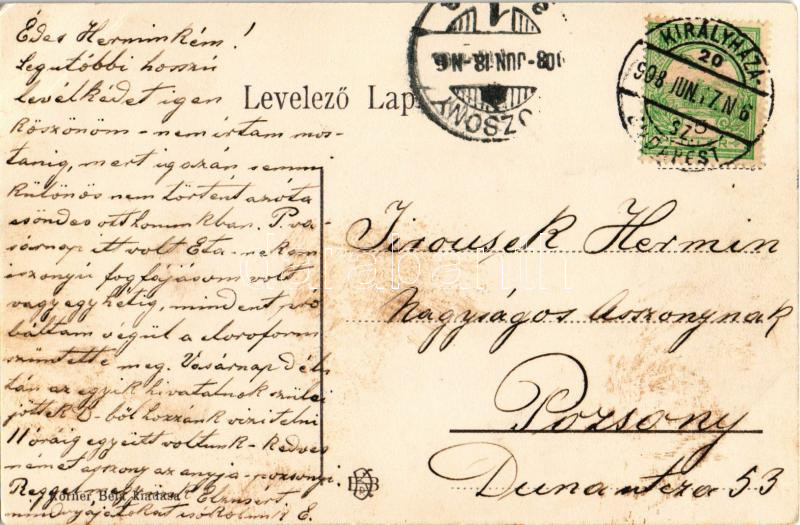 Édes Herminkém!
Legutóbbi hosszú
levélkédet igen
köszönöm - nem írtam mos-
tanig, mert igazán semmi
különös nem történt azóta
csöndes otthonunkban. P. va-
sárnap itt volt Eta - nekem
iszonyú fogfájásom volt
vagy egy hétig, mindent pró
báltam végül a cloroform
szüntette meg. Vasárnap délu
tán az egyik hivatalnok szülei
jöttek B-ből hozzánk vizitelni
11 óráig együtt voltunk - kedves
német asszony az anyja - pozsonyi.
Elzusért
mindnyájatokat csókolunk E.
Levelező Lap
Körner, Béla kiadása
POZSONY
1
908 JUN 18 N 6
KIRÁLYHÁZA-
20
908 JUN 17 N 6
SZ.
BUDAPEST
Jirousek Hermin
Nagyságos Asszonynak
Pozsony
Duna utcza 53
darabanth